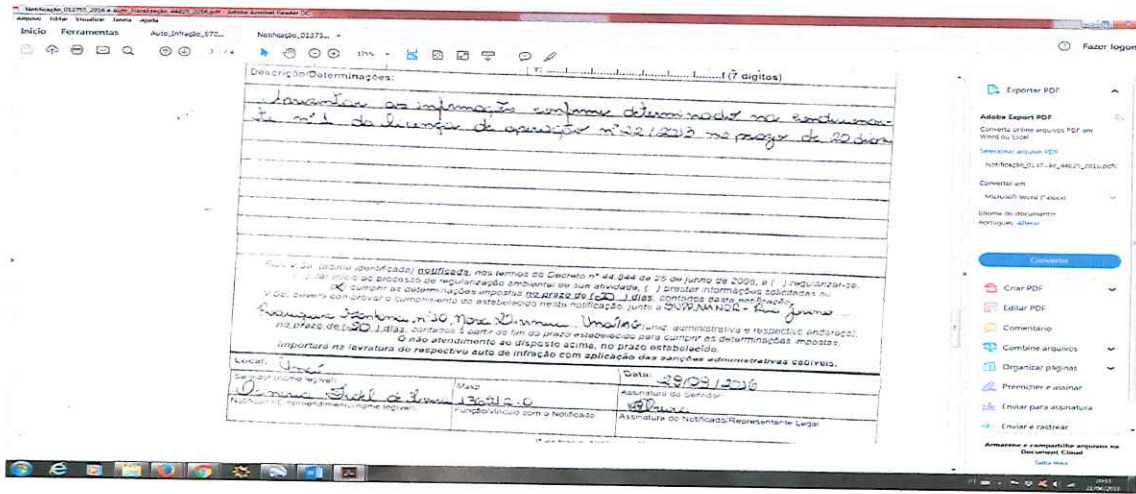 Notificação_013755_2016 e Auto_Fiscalização_44625_2016.pdf - Adobe Acrobat Reader DC
Arquivo Editar Visualizar Janela Ajuda
Início Ferramentas Auto_Infração_870... Notificação_01375... ×
Fazer logon
3 / 4 175%
(7 dígitos)
Descrição/Determinações:
as informações conforme determinado na condicionan-
te nº 1 da licença de operação nº 22/2013 no prazo de 20 dias
(acima identificado) notificada, nos termos do Decreto nº 44.844 de 25 de junho de 2008, a ( ) regularizar-se,
início ao processo de regularização ambiental de sua atividade, ( ) prestar informações solicitadas ou
(X) cumprir as determinações impostas no prazo de (20) dias, contados desta notificação.
V.Sa. deverá comprovar o cumprimento do estabelecido nesta notificação, junto a SUPRAMNOR - Rua
nº 10, Nova (unid. administrativa e respectivo endereço),
no prazo de (20) dias, contados à partir do fim do prazo estabelecido para cumprir as determinações impostas.
O não atendimento ao disposto acima, no prazo estabelecido,
importará na lavratura do respectivo auto de infração com aplicação das sanções administrativas cabíveis.
Local: Unaí
Data: 29/09/2016
Servidor (nome legível)
Masp
Assinatura do Servidor
Notificado/Empreendimento (nome legível)
Função/Vínculo com o Notificado
Assinatura do Notificado/Representante Legal
Exportar PDF
Adobe Export PDF
Converta online arquivos PDF em
Word ou Excel
Selecionar arquivo PDF
Notificação_0137...ão_44625_2016.pdf
Converter em
Microsoft Word (*.docx)
Idioma do documento:
Português Alterar
Converter
Criar PDF
Editar PDF
Comentário
Combine arquivos
Organizar páginas
Preencher e assinar
Enviar para assinatura
Enviar e rastrear
Armazene e compartilhe arquivos na
Document Cloud
Saiba mais